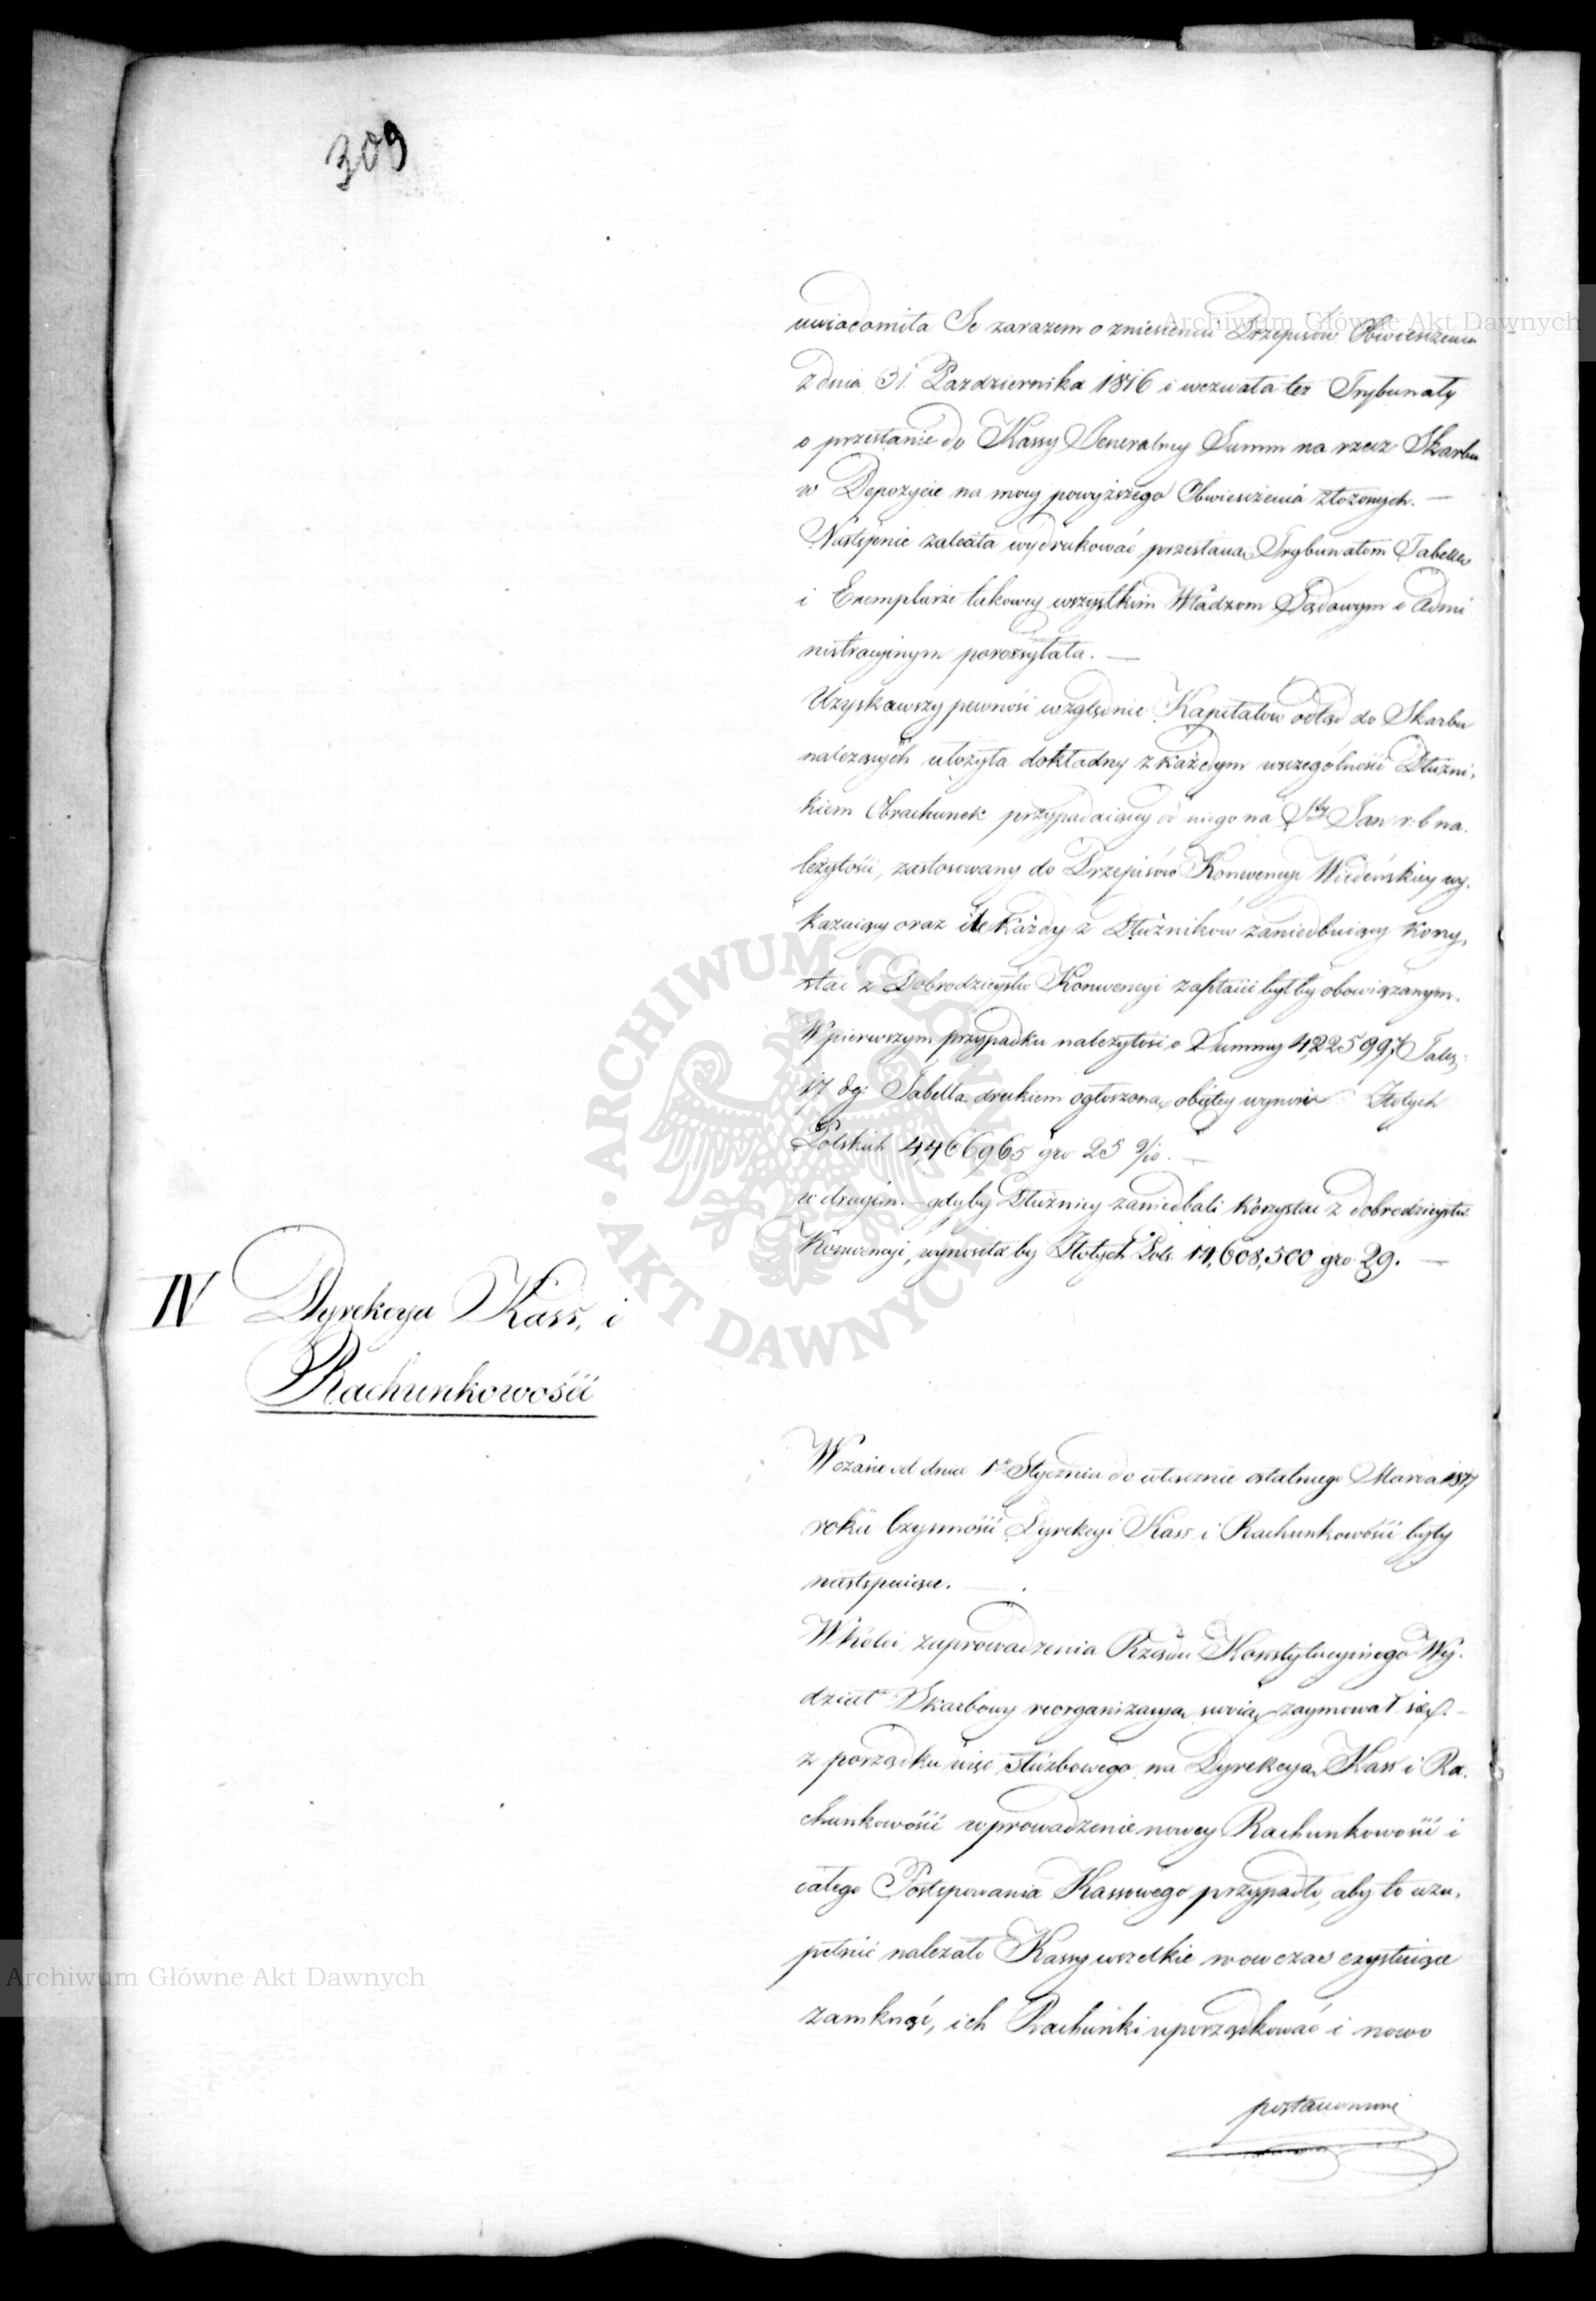 309
uwiadomiła Je zarazem o zniesieniu Przepisów Obwieszczenia
z dnia 31. Pazdziernika 1816 i wezwała też Trybunały
o przesłanie do Kassy Jeneralney Summ na rzecz Skarbu
w Depozycie na mocy powyższego Obwieszczenia złożonych. —
Następnie zaleciła wydrukować przesłaną Trybunałom Tabellę
i Exemplarze takowey wszystkim Władzom Sądowym i Admi
nistracyinym porozsyłała. —
Uzyskawszy pewność względnie Kapitałów odtąd do Skarbu
należących ułożyła dokładny z każdym wszczególności Dłużni,
kiem Obrachunek przypadaiącey od niego na Sty Jan r: b na.
leżytości, zastosowany do Przepisów Konwencyi Wiedeńskiey wy.
kazuiący oraz ile każdy z Dłużników zaniedbuiący korzy,
stać z Dobrodzieystw Konwencyi zapłacić byłby obowiązanym.
W pierwszym przypadku należytość o Summy 4225997 Talr,
17 dg: Tabellą drukiem ogłoszoną obiętey wynosi Złotych
Polskich 4,466965 gro 25 9/10. —
w drugim. — gdyby Dłużnicy zaniedbali korzystać z dobrodzieystw
Konwencyi, wynosiła by Złotych Pols. 14,608,500 gro 29. —
IV Dyrekcya Kass, i
Rachunkowości
W czasie od dnia 1o Stycznia do włącznie ostatniego Marca 1817
roku Czynności Dyrekcyi Kass i Rachunkowości były
następuiące. —
W kolei zaprowadzenia Rządu Konstytucyinego Wy.
dział Skarbowy reorganizacyą swoią zaymował się. —
z porządku więc służbowego na Dyrekcyą Kass i Ra.
chunkowości wprowadzenie nowey Rachunkowości i
całego Postępowania Kassowego przypadło, aby to uzu,
pełnić należało Kassy wszelkie wowczas exystuiące
zamknąć, ich Rachunki uporządkować i nowo
postanowione
Archiwum Główne Akt Dawnych
Archiwum Główne Akt Dawnych
ARCHIWUM GŁÓWNE AKT DAWNYCH